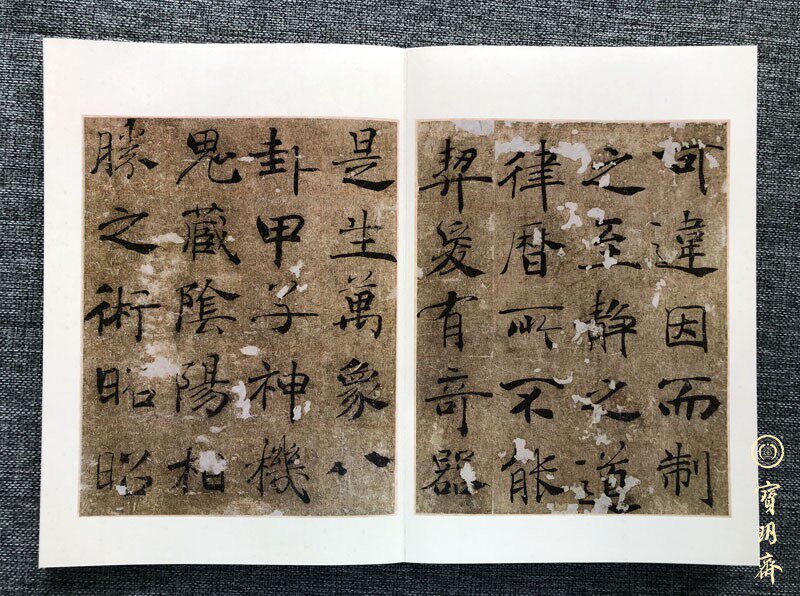 可違因而制
之至静之道
律曆所不能
契爰有奇器
是生萬象八
卦甲子神機
鬼藏陰陽相
勝之術昭昭
寶明齋